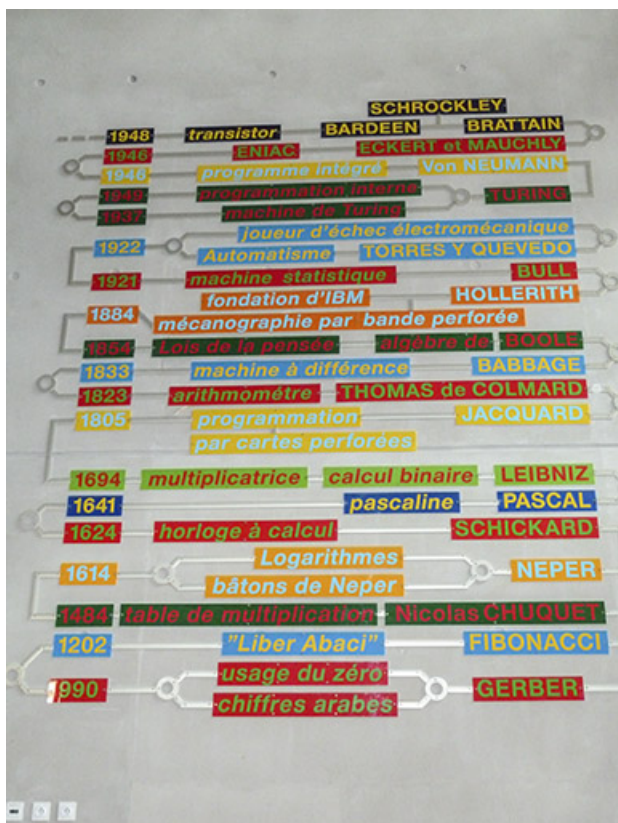 SCHROCKLEY
1948 transistor BARDEEN BRATTAIN
1946 ENIAC ECKERT et MAUCHLY
1946 programme intégré Von NEUMANN
1949 programmation interne TURING
1937 machine de Turing
joueur d'échec électromécanique
1922 Automatisme TORRES Y QUEVEDO
1921 machine statistique BULL
fondation d'IBM HOLLERITH
1884 mécanographie par bande perforée
1854 Lois de la pensée algèbre de BOOLE
1833 machine à différence BABBAGE
1823 arithmométre THOMAS de COLMARD
1805 programmation JACQUARD
par cartes perforées
1694 multiplicatrice calcul binaire LEIBNIZ
1641 pascaline PASCAL
1624 horloge à calcul SCHICKARD
Logarithmes
1614 NEPER
bâtons de Neper
1484 table de multiplication Nicolas CHUQUET
1202 "Liber Abaci" FIBONACCI
usage du zéro
990 GERBER
chiffres arabes